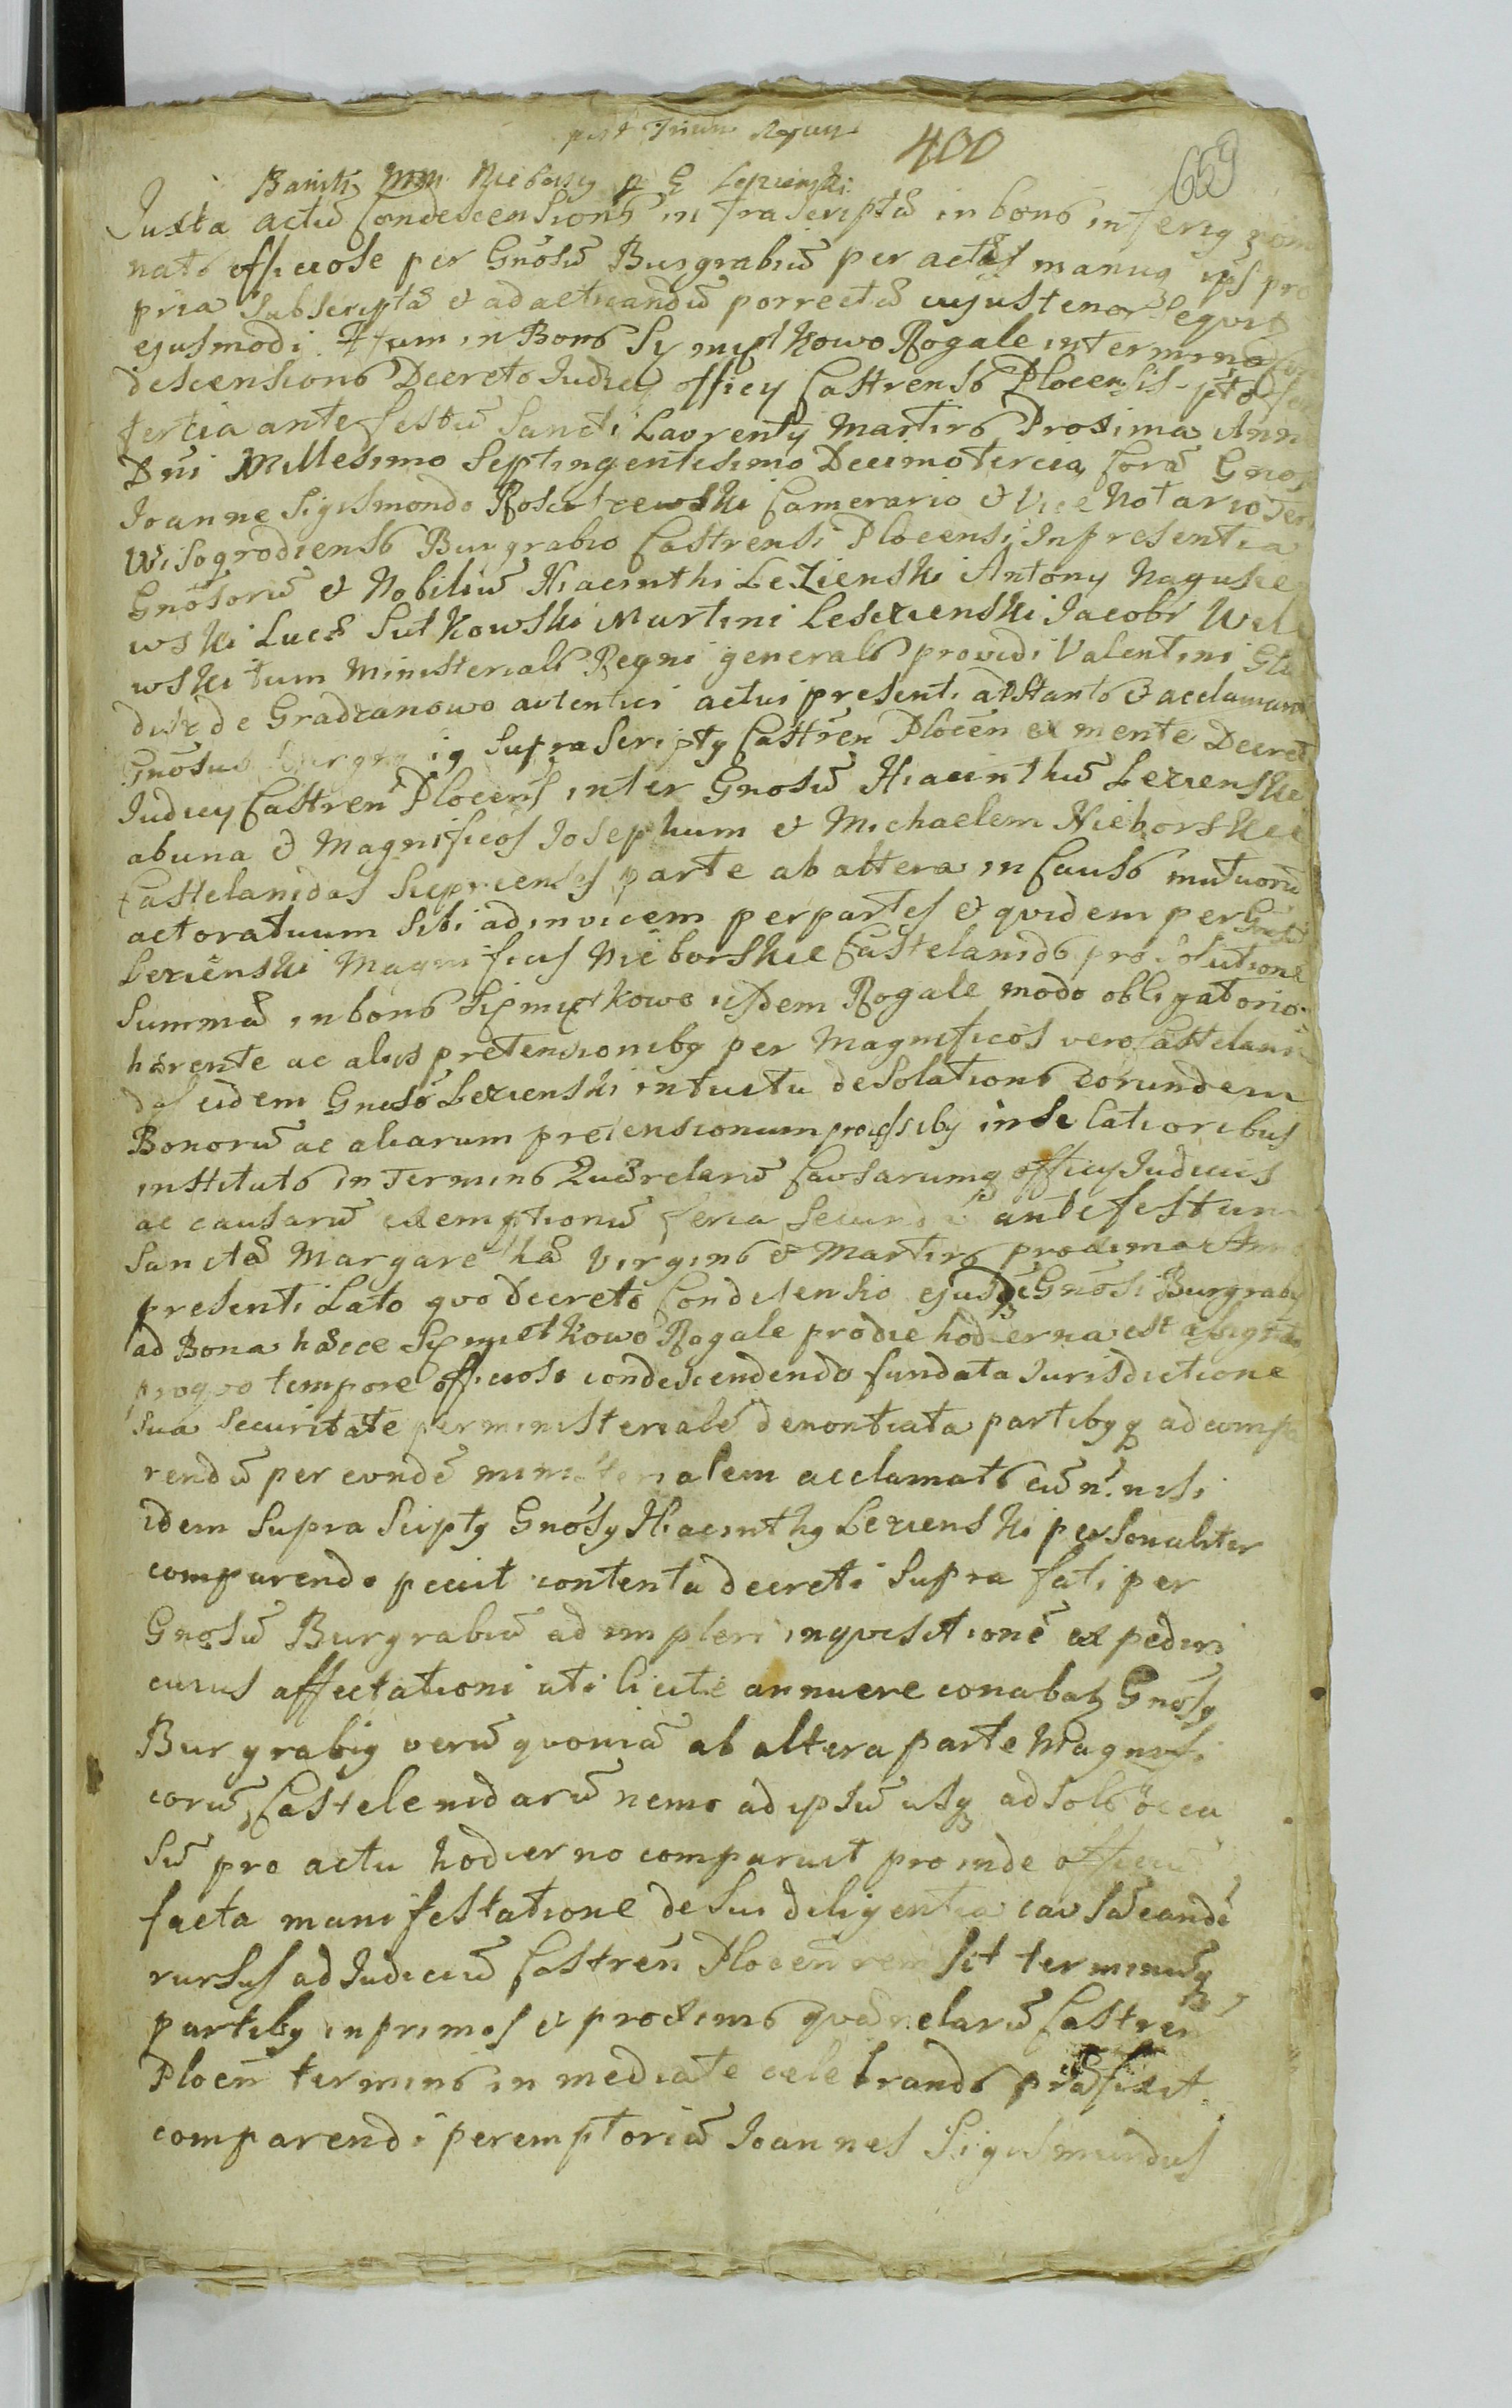 post Trium Regum
400
659
Juxta actũ Condescensionis infrascriptũ in bonis inferiꝯ
natis officiose per Gnõsũ Burgrabiũ per actũ manuqꝫ ips pro
pria subscriptũ & ad acticandũ porrectũ cujus tenor sequit
ejusmodi. Actum in Bonis Rogale in termino
descensionis Decreto Judicij officij Castrensis Plocensis
tercia ante festũ Sancti Laurentij Martiris Proxima Anno
Dñi Millesimo Septingentesimo Decimotercia, Corã Gnos
Joanne Sigismondo Rosciszewski Camerario & Vice Notario Ter
Wisogrodiensis Burgrabio Castrensi Plocensi In presentia
Gnõsorũ & Nobiliũ Hiacinthi Lezienski Antony
wski Lucæ Sutkowski Martini Leszczenski Jacobi
wski tum Ministerialis Regni generalis providi Valentini
de Gradzanowo autentici actui presenti adstantis & acclamantis
Gnõsus supra Scriptꝯ Castreñ Ploceñ ex mente Decreti
Judicij Castreñ Plocens inter Gnosũ Hiacinthũ Lezienski
ab una & Magnificos Josephum & Michaelem Nieborskie
Castelanidas Sieprcenses parte ab altera in Causis mutuorũ
actoratuum sibi ad invicem per partes & quidem per Gnosũ
Lezienski Magnificis Nieborskie Castelanidis pro solutione
Summæ in bonis iisdem Rogale modo obligatorio
hærente ac aliis pretensionibꝯ per Magnificos vero Castelani
das eidem Gnoso Lezienski intuitu desolationis eorundem
Bonorũ ac aliarum pretensionum in se latioribus
institutis in Terminis Quærelarũ Causarumqꝫ officij Judicij
ac causarũ exemptionũ feria Secunda ante festum
Sanctæ Margarethæ Virginis & Martiris proxima Anno
presenti Lato quo decreto Condesensio ejusdẽ Gnõsi Burgrabij
ad Bona hæcce Rogale pro die hodierna est
pro quo tempore officiose condescendendo fundata Jurisdictione
sua securitate per ministerialẽ denontiata partibꝯqꝫ ad compa
rendũ per eundẽ ministerialem acclamatis cũ nõ nisi
idem supra Sciptꝯ Gnõsꝯ Hiacinthꝯ Lezienski personaliter
comparendo peciit contenta decreti supra fati per
Gnosũ Burgrabiũ adimpleri inqvisitionẽ expediri
cuius affectationi uti licitè annuere conabatꝫ Gnõsꝯ
Burgrabiꝯ verũ quoniã ab altera parte Magnifi
corũ Castelenidarũ nemo ad ipsũ usqꝫ ad solis occa
sũ pro actu hodierno comparuit proinde officiũ
facta manifestatione de sui diligentia causã eandẽ
rursus ad Judiciũ Castreñ Ploceñ remisit terminũqꝫ
partibꝯ in primis & proximis quærelarũ Castreñ
Ploceñ terminis in mediate celebrandis præfixit
comparendi peremptoriũ Joannes Sigismundus